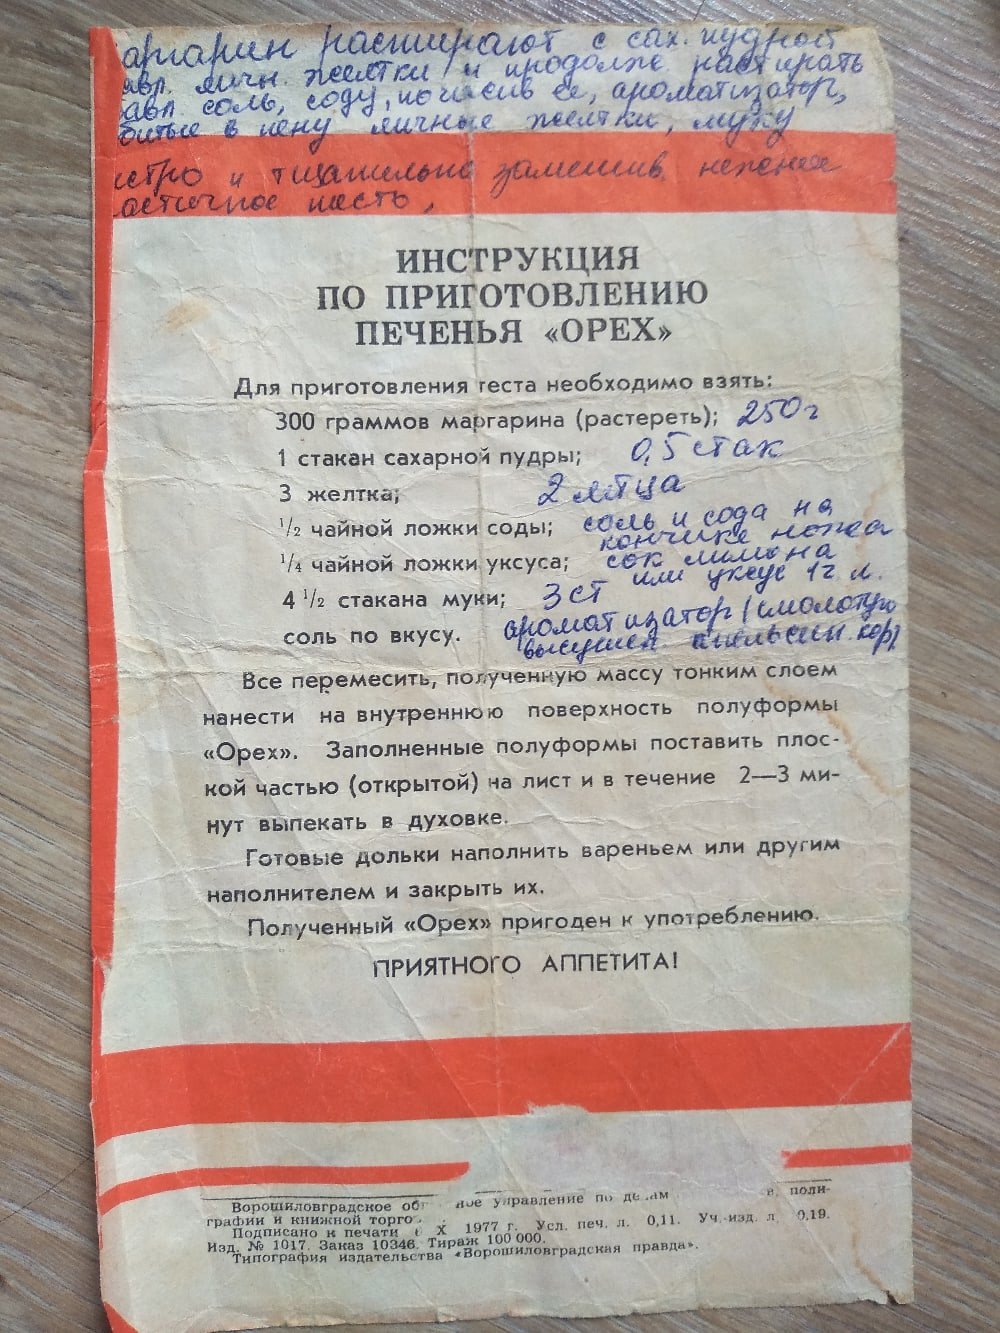 аргарин растирают с сах. пудрой
авл. яичн. желтки и продолж растирать
авл соль, соду, погасив ее, ароматизатор,
битые в пену яичные желтки, муку
стро и тщательно замешив нежное
астичное тесто,
ИНСТРУКЦИЯ
ПО ПРИГОТОВЛЕНИЮ
ПЕЧЕНЬЯ «ОРЕХ»
Для приготовления теста необходимо взять:
300 граммов маргарина (растереть); 250 г
1 стакан сахарной пудры; 0,5 стак
3 желтка; 2 яйца
1/2 чайной ложки соды; соль и сода на
кончике ножа
1/4 чайной ложки уксуса; сок лимона
или уксус 1 ч л.
4 1/2 стакана муки; 3 ст
соль по вкусу. ароматизатор (смолотую
высушен. апельсин. кор)
Все перемесить, полученную массу тонким слоем
нанести на внутреннюю поверхность полуформы
«Орех». Заполненные полуформы поставить плос-
кой частью (открытой) на лист и в течение 2—3 ми-
нут выпекать в духовке.
Готовые дольки наполнить вареньем или другим
наполнителем и закрыть их.
Полученный «Орех» пригоден к употреблению.
ПРИЯТНОГО АППЕТИТА!
Ворошиловградское об ное управление по делам в, поли-
графии и книжной торго
Подписано к печати 6 X 1977 г. Усл. печ. л. 0,11. Уч.-изд. л 0,19.
Изд. № 1017. Заказ 10346. Тираж 100 000.
Типография издательства «Ворошиловградская правда».